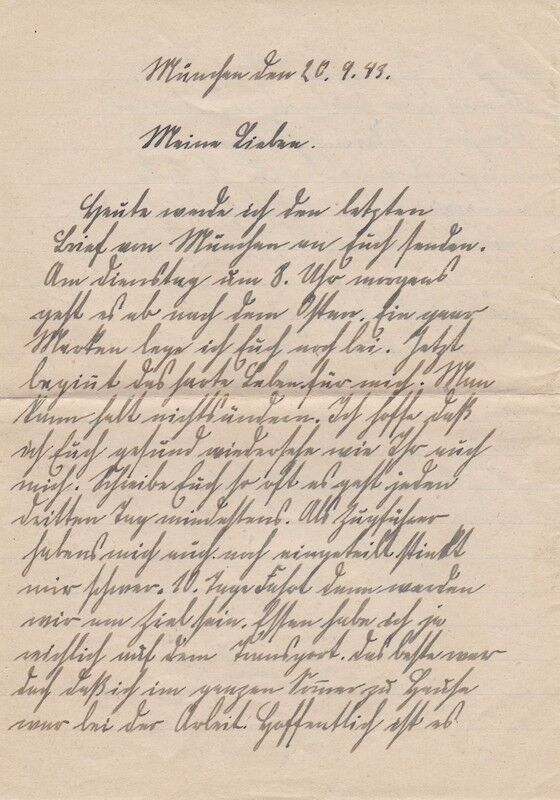 München den 20.9.43.
Meine Lieben.
Heute werde ich den letzten
Brief von München an Euch senden.
Am Dienstag um 8. Uhr morgens
geht es ab nach dem Osten. Ein paar
Marken lege ich Euch noch bei. Jetzt
beginnt das harte Leben für mich. Man
kann halt nichts ändern. Ich hoffe daß
ich Euch gesund wiedersehe wie Ihr auch
mich. Schreibe Euch so oft es geht jeden
dritten Tag mindestens. Als Zugführer
habens mich auch noch eingeteilt stinkt
mir schwer. 10. Tage Fahrt dann werden
wir am Ziel sein. Essen habe ich ja
reichlich auf dem Transport. Das beste war
doch daß ich im ganzen Sommer zu Hause
war bei der Arbeit. Hoffentlich ist es